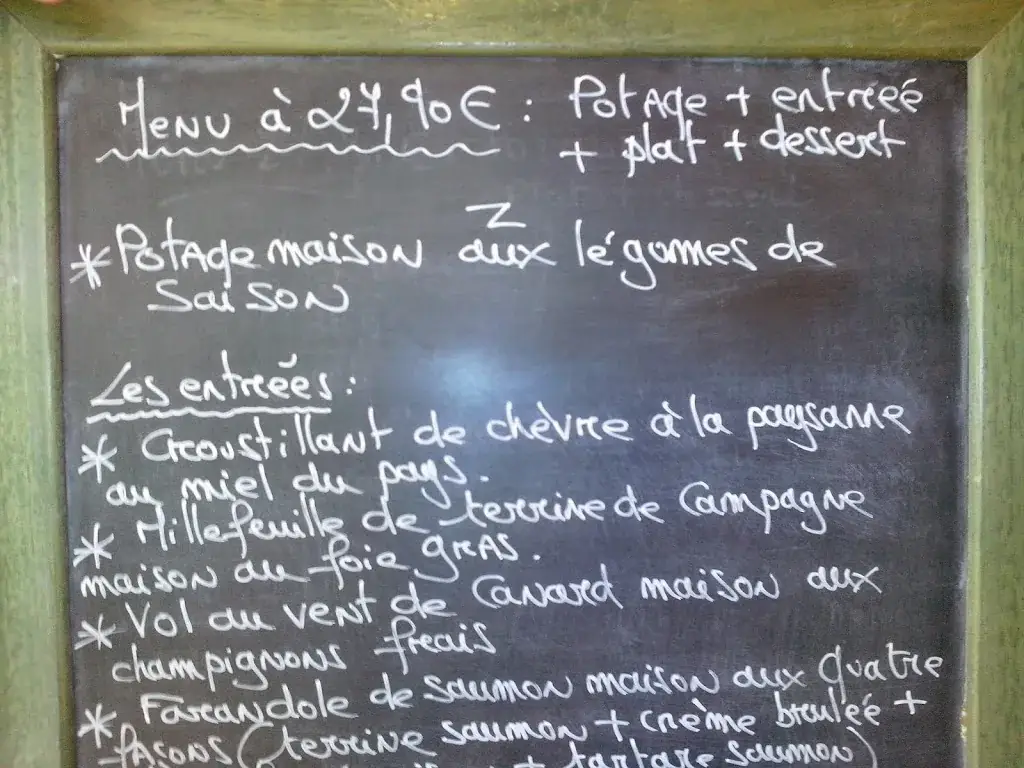 Menu à 27,90€ : Potage + entreé
+ plat + dessert
Z
* Potage maison aux légumes de
saison
Les entreés :
* Croustillant de chèvre à la paysanne
au miel du pays.
* Millefeuille de terrine de Campagne
maison au foie gras.
* Vol au vent de Canard maison aux
champignons frais
* Farandole de saumon maison aux quatre
façons (terrine saumon + crème brulée +
+ tartare saumon)